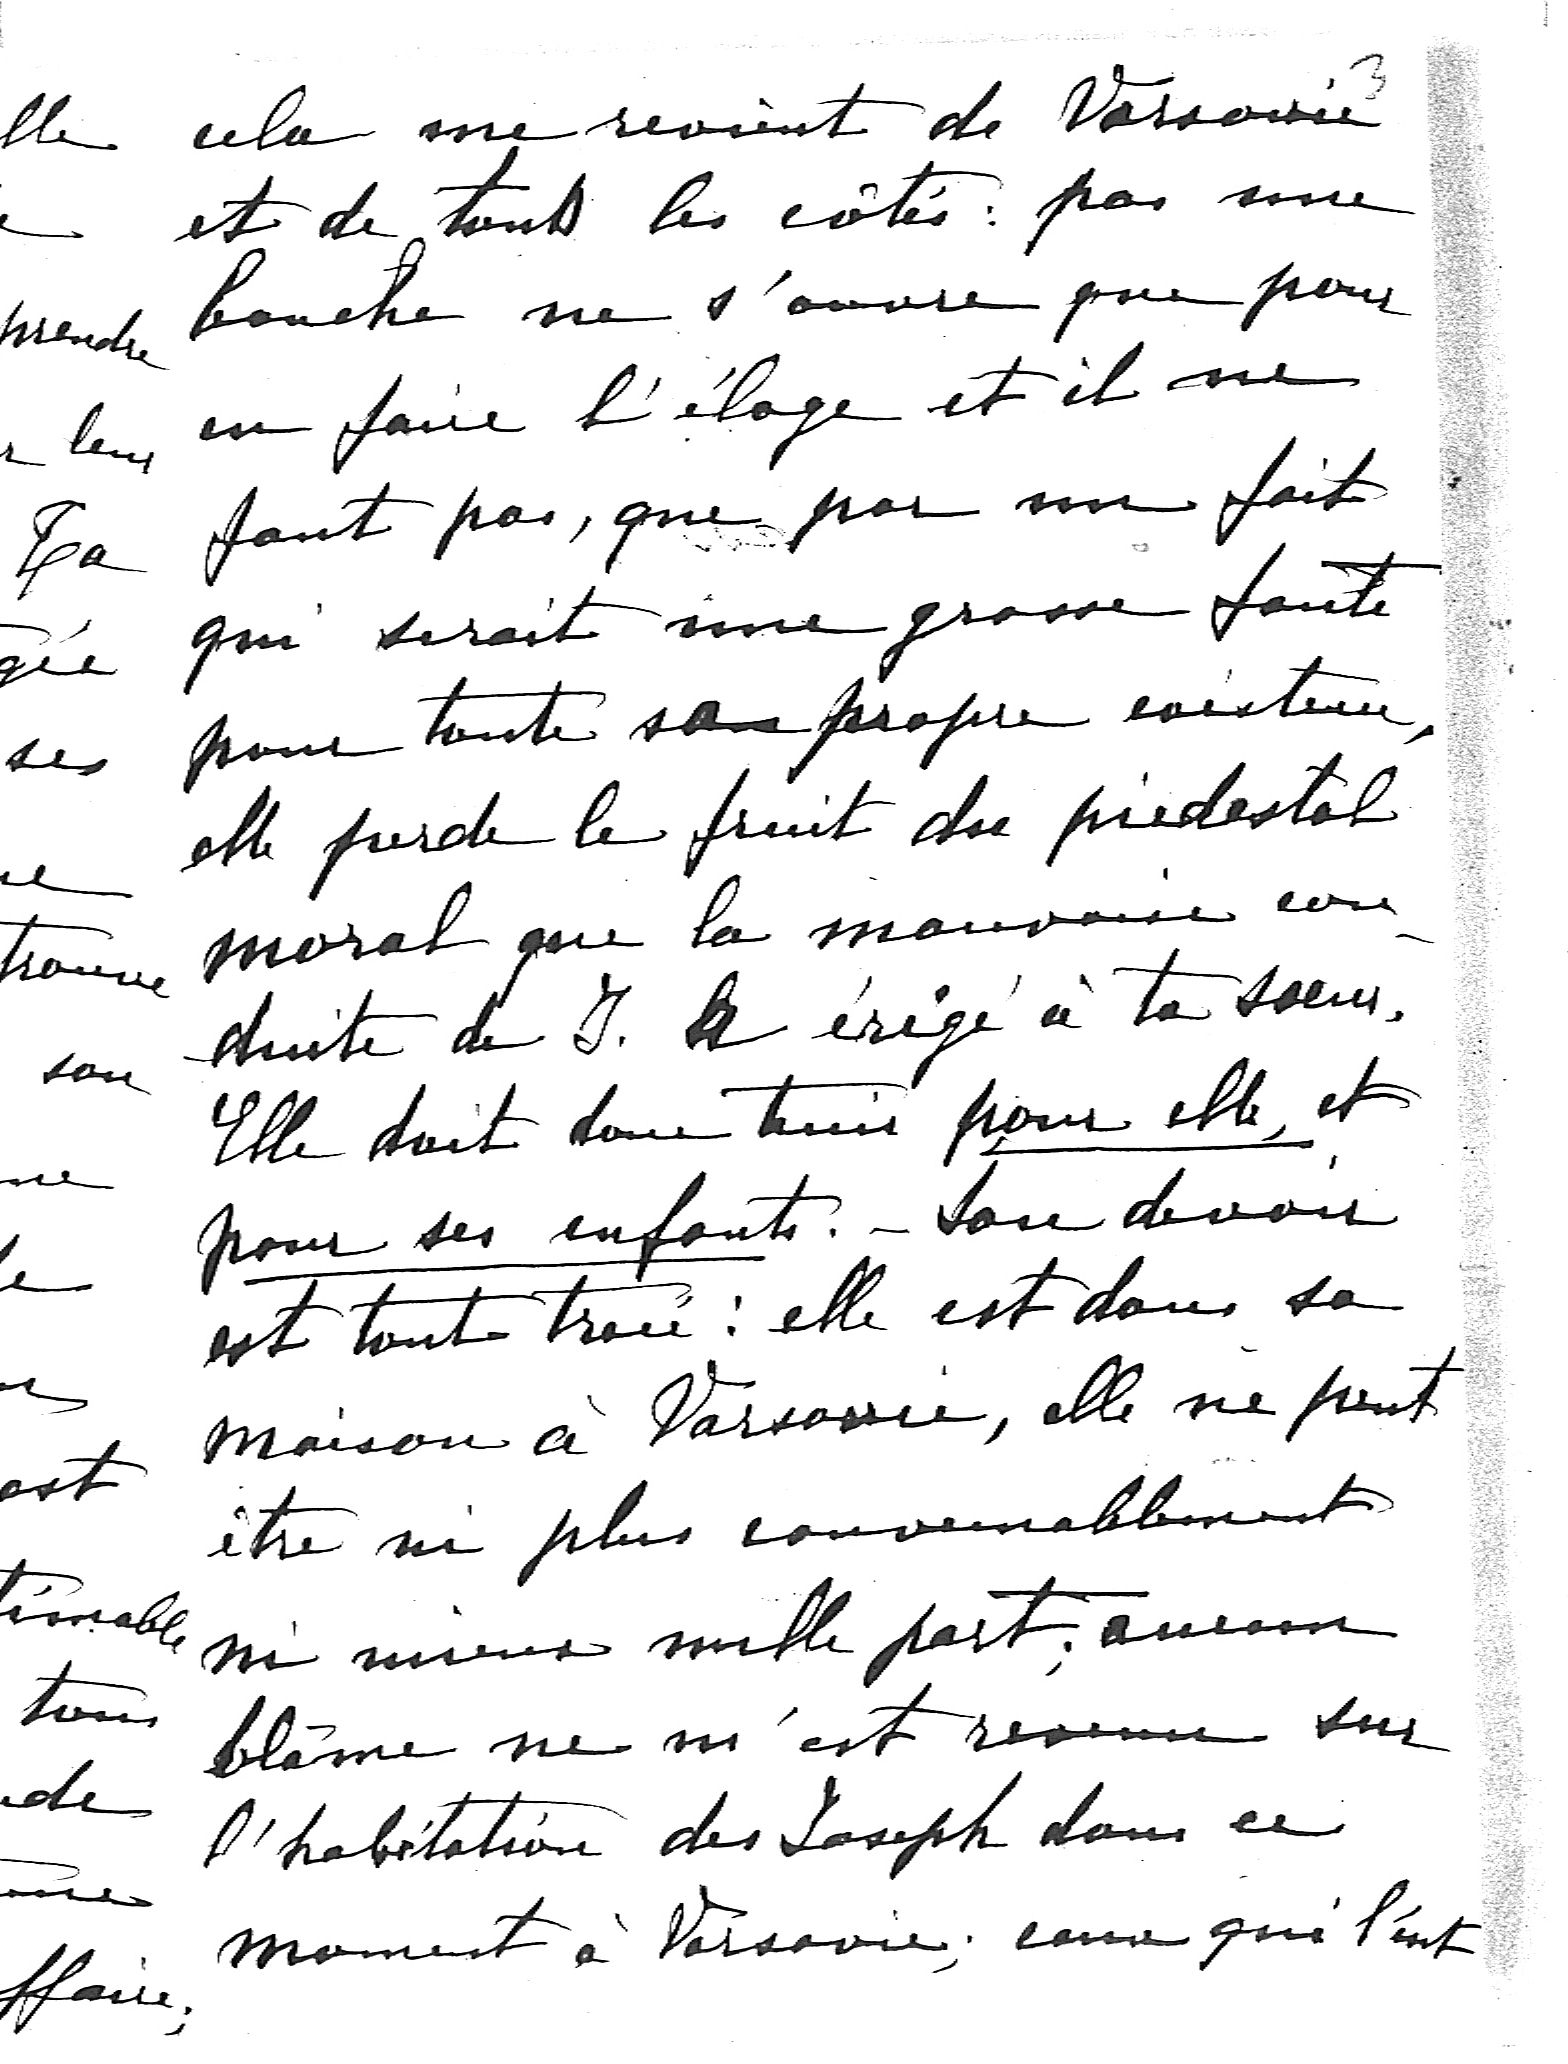 3
cela me revient de Varsovie
et de tous les côtés: pas une
bouche ne s'ouvre que pour
en faire l'éloge et il ne
faut pas, que par un fait
qui serait une grosse faute
pour toute son propre existence,
elle perde le fruit du piedestal
moral que la mauvaise con-
duite de J. a érigé à ta soeur.
Elle doit donc tenir pour elle, et
pour ses enfants. - Son devoir
est tout tracé: elle est dans sa
maison à Varsovie, elle ne peut
être ni plus convenablement
ni mieux nulle part; aucun
blâme ne m'est revenu sur
l'habitation des Joseph dans ce
moment à Varsovie; ceux qui l'ont
lle
prendre
leur
Ta
gée
ses
trouve
son
ne
est
timable
tous
de
ffaire;